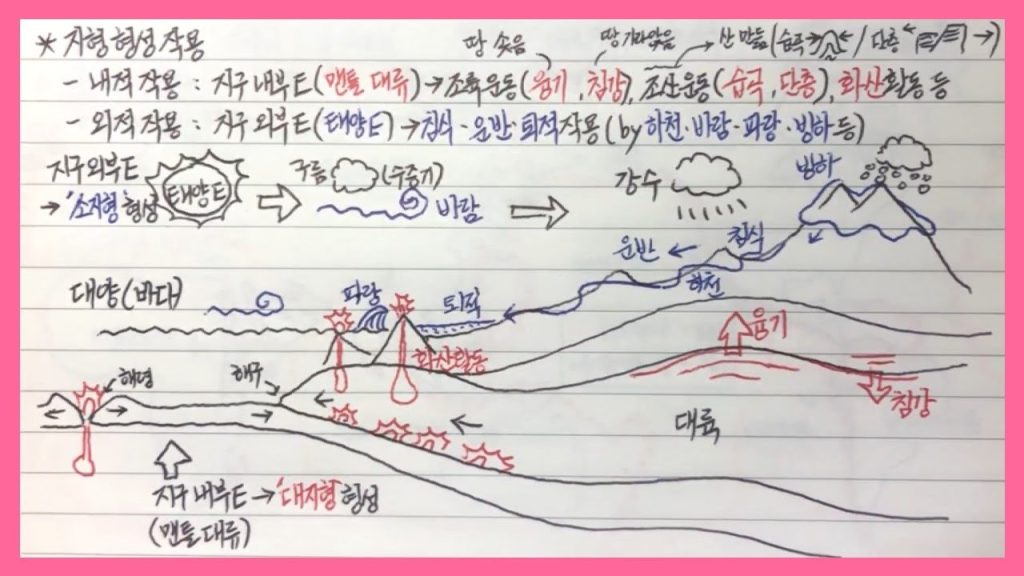 * 지형형성작용
땅 솟음 땅 가라앉음 산 만듦 (습곡 / 단층 )
- 내적 작용 : 지구 내부 E (맨틀 대류) → 조륙운동 (융기, 침강), 조산운동 (습곡, 단층), 화산활동 등
- 외적 작용 : 지구 외부 E (태양 E) → 침식·운반·퇴적작용 (by 하천·바람·파랑·빙하 등)
지구 외부 E
→ '소지형' 형성
태양 E
구름 (수증기)
바람
강수
빙하
운반 ← 침식
하천
대양 (바다)
파랑
퇴적
화산활동
융기
침강
해령
해구
대륙
지구 내부 E → '대지형' 형성
(맨틀 대류)